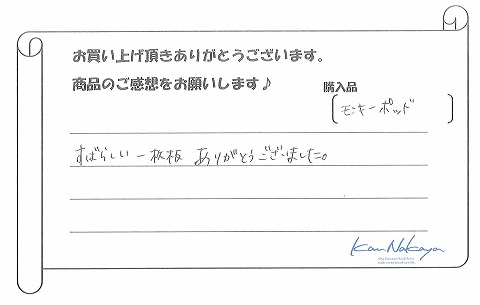 お買い上げ頂きありがとうございます。
商品のご感想をお願いします♪
購入品
モンキーポッド
すばらしい一枚板 ありがとうございました。
Kan Nakaya